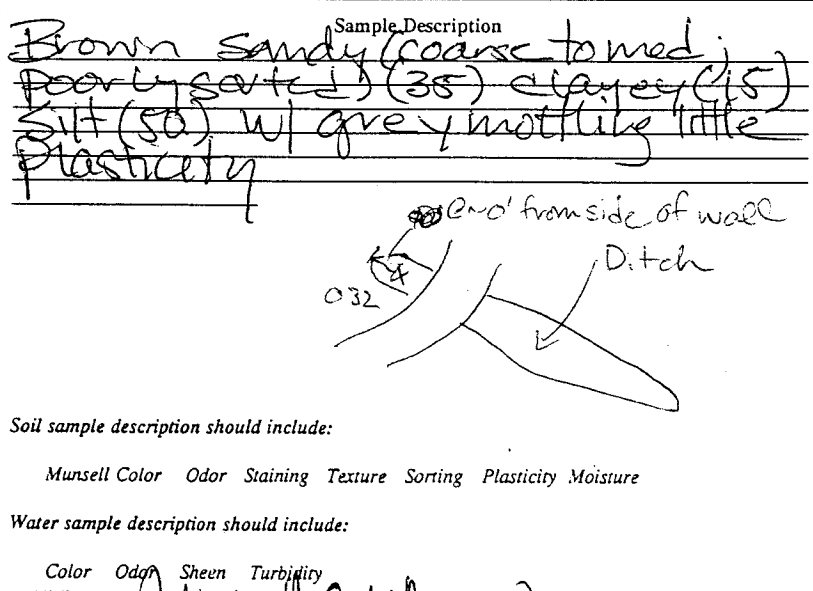 Sample Description
Brown sandy (coarse to med;
poorly sorted) (35) clayey (15)
silt (50) w/ grey mottling little
plasticity
from side of wall
Ditch
4
032
Soil sample description should include:
Munsell Color Odor Staining Texture Sorting Plasticity Moisture
Water sample description should include:
Color Odor Sheen Turbidity